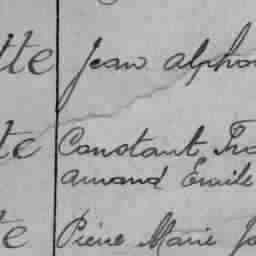 tte Jean Alpho
te Constant Fra
Amand Emile
te Pierre Marie Jo